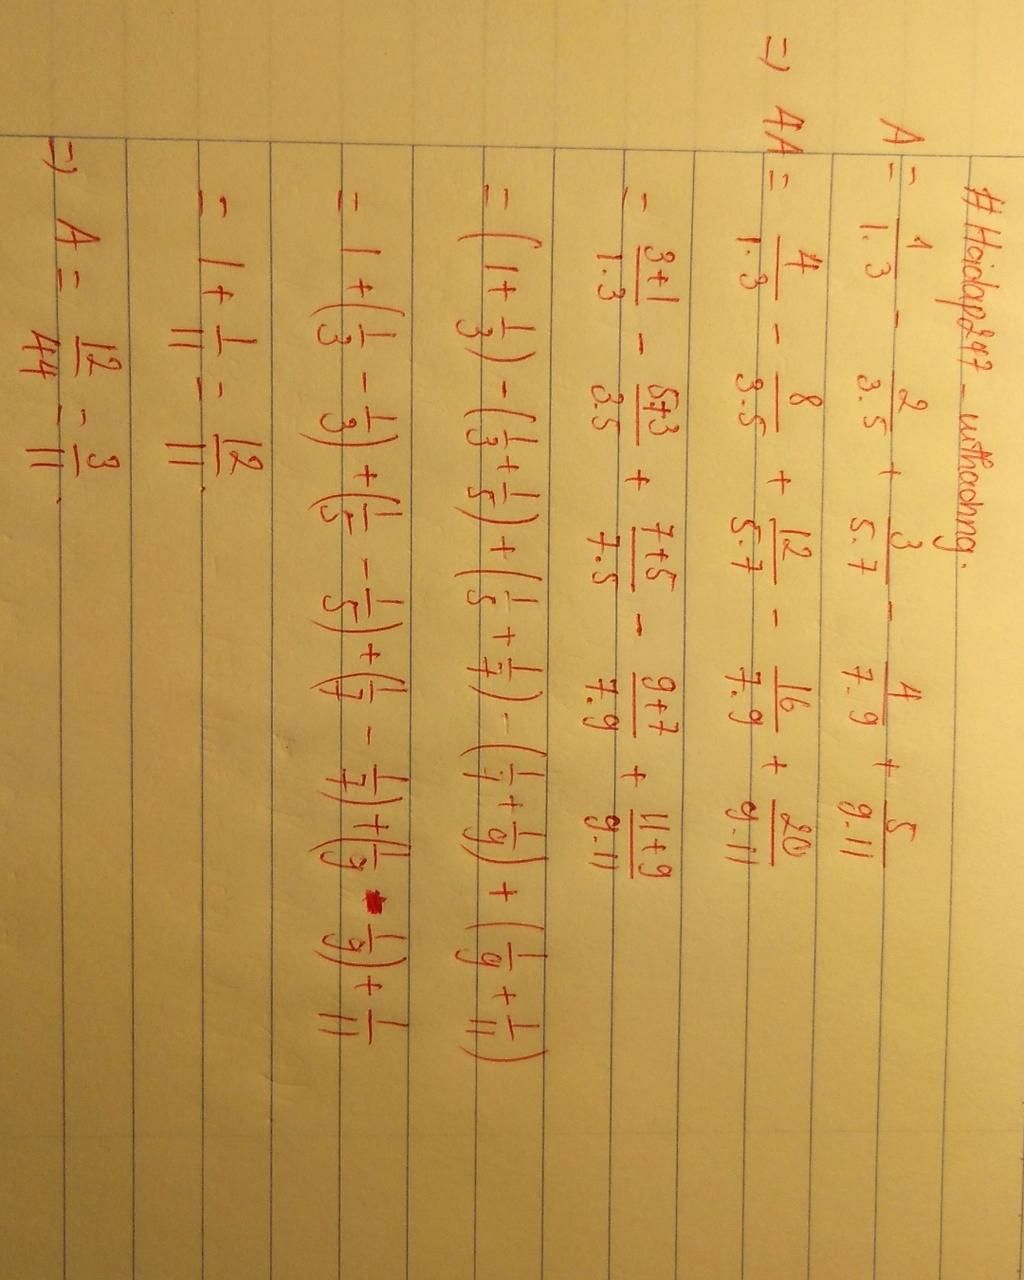 #Hoidap247_withaohng.
A = 1/1.3 - 2/3.5 + 3/5.7 - 4/7.9 + 5/9.11
=> 4A = 4/1.3 - 8/3.5 + 12/5.7 - 16/7.9 + 20/9.11
= 3+1/1.3 - 5+3/3.5 + 7+5/7.5 - 9+7/7.9 + 11+9/9.11
= (1 + 1/3) - (1/3 + 1/5) + (1/5 + 1/7) - (1/7 + 1/9) + (1/9 + 1/11)
= 1 + (1/3 - 1/3) + (1/5 - 1/5) + (1/7 - 1/7) + (1/9 - 1/9) + 1/11
= 1 + 1/11 = 12/11.
=> A = 12/44 = 3/11.